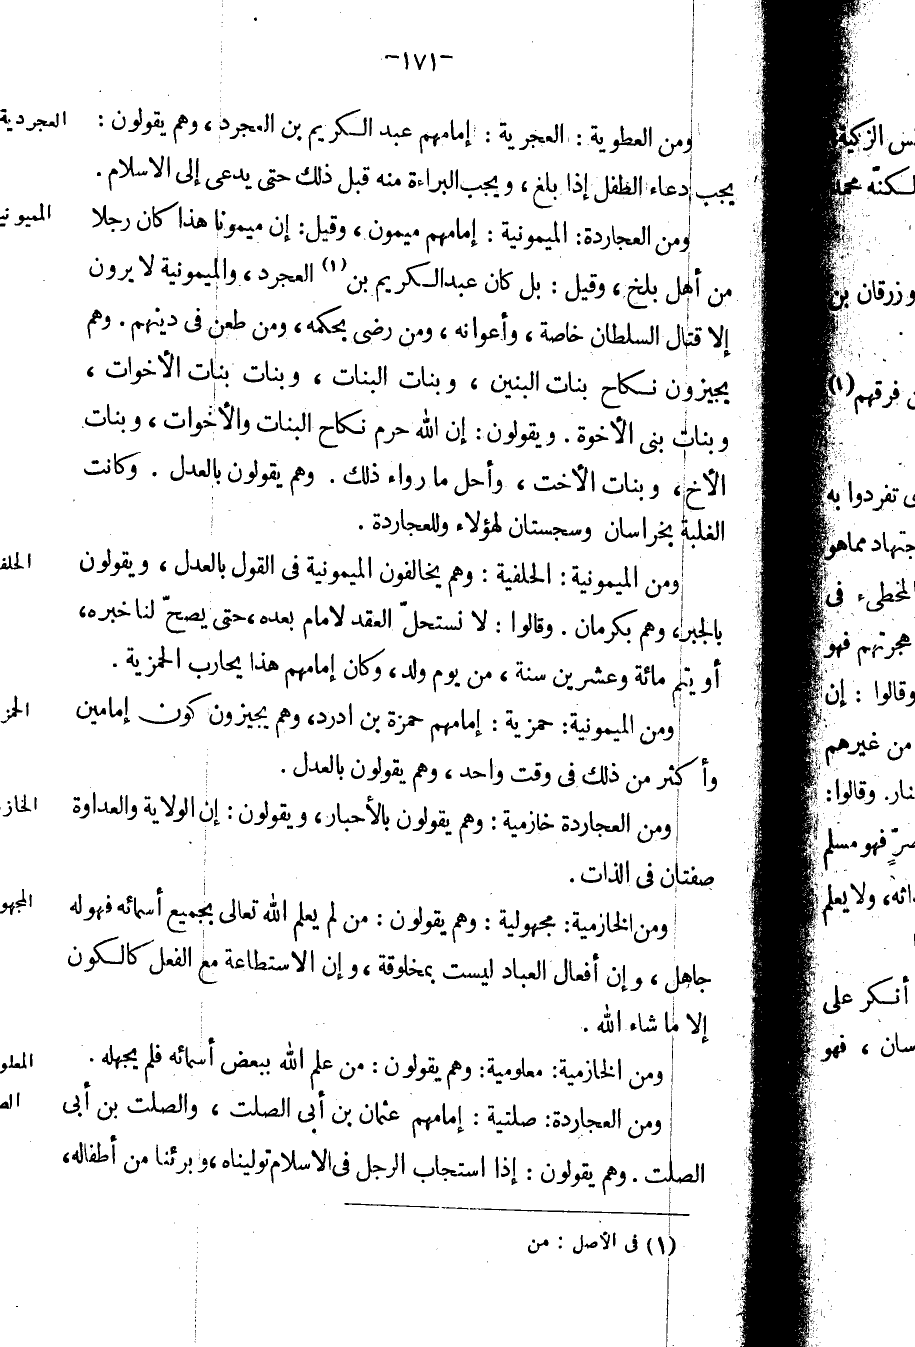 -١٧١-
ومن العطوية : العجرية : إمامهم عبد الكريم بن العجرد ، وهم يقولون :
العجردية
يجب دعاء الطفل إذا بلغ ، ويجب البراءة منه قبل ذلك حتى يدعى إلى الاسلام .
ومن العجاردة : الميمونية : إمامهم ميمون ، وقيل : إن ميمونا هذا كان رجلا
من أهل بلخ ، وقيل : بل كان عبد الكريم بن (١) العجرد ، والميمونية لا يرون
إلا قتال السلطان خاصة ، وأعوانه ، ومن رضى بحكمه ، ومن طعن فى دينهم . وهم
يجيزون نكاح بنات البنين ، وبنات البنات ، وبنات بنات الأخوات ،
وبنات بنى الأخوة . ويقولون : إن الله حرم نكاح البنات والأخوات ، وبنات
الأخ ، وبنات الأخت ، وأحل ما رواء ذلك . وهم يقولون بالعدل . وكانت
الغلبة بخراسان وسجستان لهؤلاء وللعجاردة .
ومن الميمونية : الخلفية : وهم يخالفون الميمونية فى القول بالعدل ، ويقولون
بالجبر ، وهم بكرمان . وقالوا : لا نستحلّ العقد لامام بعده ، حتى يصحّ لنا خبره ،
أو يتم مائة وعشرين سنة ، من يوم ولد ، وكان إمامهم هذا يحارب الحمزية .
ومن الميمونية : حمزية : إمامهم حمزة بن ادرد ، وهم يجيزون كون إمامين
وأكثر من ذلك فى وقت واحد ، وهم يقولون بالعدل .
ومن العجاردة خازمية : وهم يقولون بالأحبار ، ويقولون : إن الولاية والعداوة
صفتان فى الذات .
ومن الخازمية : مجهولية : وهم يقولون : من لم يعلم الله تعالى بجميع أسمائه فهو له
جاهل ، وإن أفعال العباد ليست بمخلوقة ، وإن الاستطاعة مع الفعل كالكون
إلا ما شاء الله .
ومن الخازمية : معلومية : وهم يقولون : من علم الله ببعض أسمائه فلم يجهله .
ومن العجاردة : صلتية : إمامهم عثمان بن أبى الصلت ، والصلت بن أبى
الصلت . وهم يقولون : إذا استجاب الرجل فى الاسلام توليناه ، وبرئنا من أطفاله ،
(١) فى الأصل : من
و زرقان بن
فرقهم (١)
تفردوا به
المخطىء فى
هجرتهم فهو
وقالوا : إن
من غيرهم
وقالوا :
فهو مسلم
ولا يعلم
أنكر على
فهو